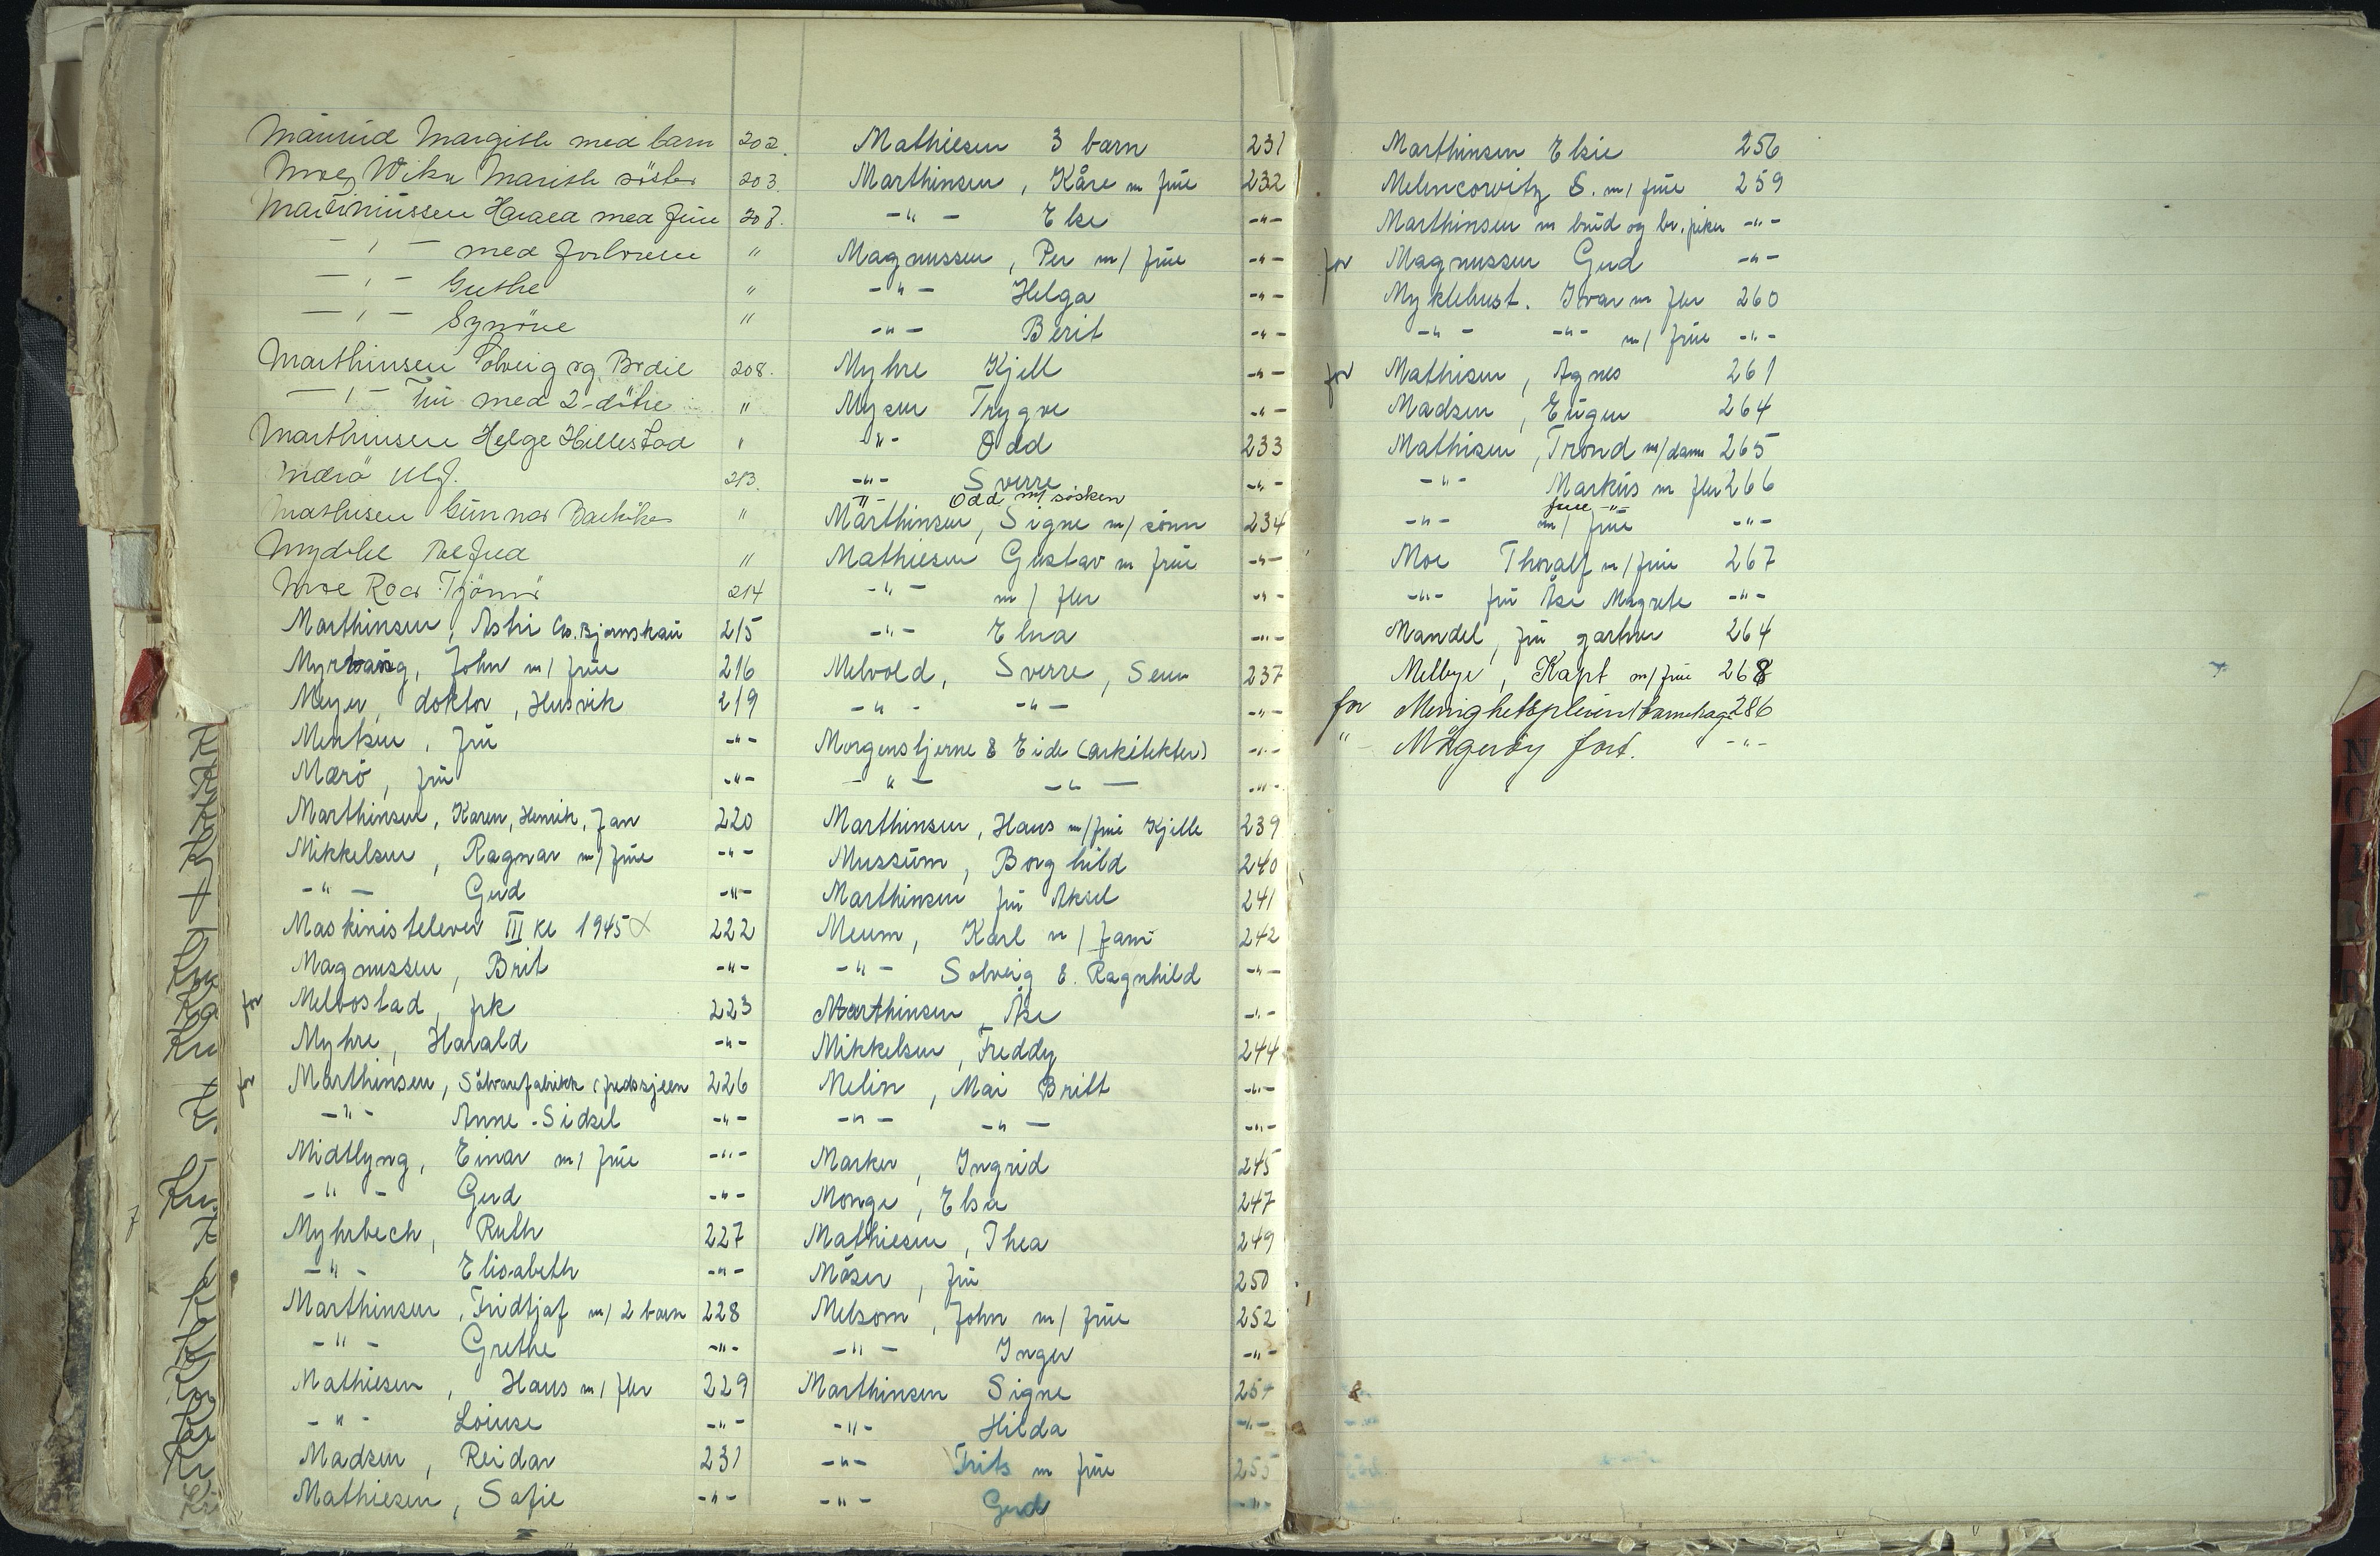 Maurud Margith med barn 202.
Moe, Wiken Marith söster 203.
Martiniussen Harald med frue 208.
— " — med forlovede "
— " — Grethe "
— " — Synöve "
Marthinsen Solveig og Bodil 208.
— " — Fru med 2 døtre "
Marthinsen Helge Hillestad "
Mærö Ulf. 213.
Mathisen Gunnar "
Alfred "
Moe Roar Tjømø 214
Marthinsen, Astri Chr. Bjørnskau 215
Myrvang, John m/ frue 216
Meyer, doktor, Husvik 219
Mentsen, fru -"-
Mærö, fru -"-
Marthinsen, Karen, Henrik, Jan 220
Mikkelsen, Ragnar m/ frue -"-
-"- Gerd -"-
Maskinistelever III kl 1945 222
Magnussen, Brit -"-
for Melbostad, frk 223
Myhre, Harald -"-
for Marthinsen, Sölvvarefabrikk (fredsskjeen 226
-"- Anne-Sidsel -"-
Midtlyng, Einar m/ frue -"-
-"- Gerd -"-
Myhrbech, Ruth 227
-"- Elisabeth -"-
Marthinsen, Fridtjof m/ 2 barn 228
-"- Grethe -"-
Mathiesen, Hans m/ fler 229
-"- Louise -"-
Madsen, Reidar 231
Mathiesen, Sofie -"-
Mathiesen 3 barn 231
Marthinsen, Kåre m frue 232
-"- Else -"-
Magnussen, Per m/ frue -"-
-"- Helga -"-
-"- Berit -"-
Myhre Kjell -"-
Mysen Trygve -"-
-"- Odd 233
-"- Sverre -"-
-"- Odd m/ søsken
Marthinsen, Signe m/ sönn 234
Mathiesen Gustav m frue -"-
-"- m/ fler -"-
-"- Elna -"-
Melvold, Sverre, Sem 237
-"- -"- -"-
Morgenstjerne & Eide (arkitekter) -"-
-"- -"- -"-
Marthinsen, Hans m/frue Kjelle 239
Mussum, Borghild 240
Marthinsen fru Aksel 241
Meum, Karl m/ fam 242
-"- Solveig & Ragnhild -"-
Marthinsen, Åse -"-
Mikkelsen, Freddy 244
Melin, Mai Britt -"-
-"- -"- -"-
Marker, Ingrid 245
Monge, Elsa 247
Mathiesen, Thea 249
Möser, fru 250
Melsom, John m/ frue 252
-"- Inger -"-
Marthinsen Signe 254
-"- Hilda -"-
-"- Frits m frue 255
-"- Gerd -"-
Marthinsen Elsie 256
Melencorvitz S. m/ frue 259
Marthinsen m brud og br.piker -"-
for Magnussen Gerd -"-
Myklebust. Ivar m fler 260
-"- -"- m/ frue -"-
for Mathisen, Agnes 261
Madsen, Eugen 264
Mathisen, Trond m/dame 265
-"- Markus m fler 266
-"- m/ frue -"-
Moe Thoralf m/frue 267
-"- fru Åse Magrete -"-
Mandel, fru gartner 264
Melbye, Kapt m/frue 268
for Menighetspleien/barnehage 286
" Mågerøy fort. -"-